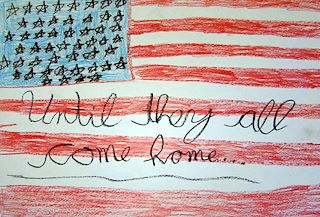 Until they all
come home...